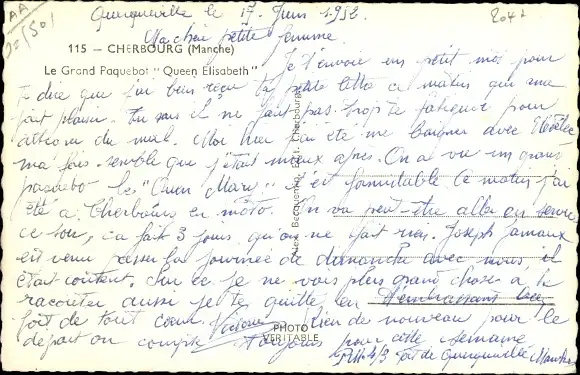 AA
00/501
2042
Querqueville le 17 Juin 1952
Ma chère petite femme
115 — CHERBOURG (Manche)
Le Grand Paquebot "Queen Elisabeth"
Je t'envoie un petit mot pour
te dire que j'ai bien reçu ta petite lettre ce matin qui me
fait plaisir. Tu sais il ne faut pas trop te fatiguer pour
du mal. Moi hier j'ai été me baigner avec
ma fois semble que j'étais mieux après. On a vu un grand
paquebot le "Queen Mary" c'est formidable. Ce matin j'ai
été a Cherbourg en moto. On va peut-être aller en
ce soir, ca fait 3 jours qu'on ne fait rien. Joseph
est venu passer la journée de dimanche avec nous il
était content. Sur ce je ne vois plus grand chose à te
raconter aussi je te quitte en t'embrassant
fort de tout coeur. Victor Rien de nouveau pour le
départ on compte toujours pour cette semaine
Fort de Querqueville Manche
PHOTO
VERITABLE
Cherbourg